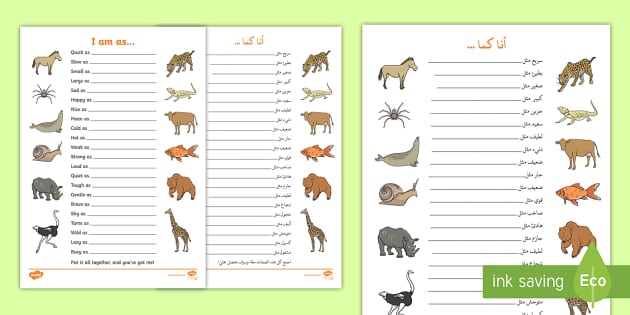 I am as...
Quick as
Slow as
Small as
Large as
Sad as
Happy as
Nice as
Mean as
Cold as
Hot as
Weak as
Strong as
Loud as
Quiet as
Tough as
Gentle as
Brave as
Shy as
Tame as
Wild as
Lazy as
Busy as
Put it all together, and you've got me!
أنا كما ...
سريع مثل
بطيئ مثل
صغير مثل
كبير مثل
حزين مثل
سعيد مثل
لطيف مثل
دنيء مثل
ضعيف مثل
حار مثل
ضعيف مثل
قوي مثل
صاخب مثل
هادئ مثل
حازم مثل
لطيف مثل
شجاع مثل
خجول مثل
لطيف مثل
متوحش مثل
كسول مثل
أنا كما ...
سريع مثل
بطيئ مثل
صغير مثل
كبير مثل
حزين مثل
سعيد مثل
لطيف مثل
دنيء مثل
ضعيف مثل
حار مثل
ضعيف مثل
صاخب مثل
هادئ مثل
حازم مثل
شجاع مثل
لطيف مثل
متوحش مثل
ink saving
Eco